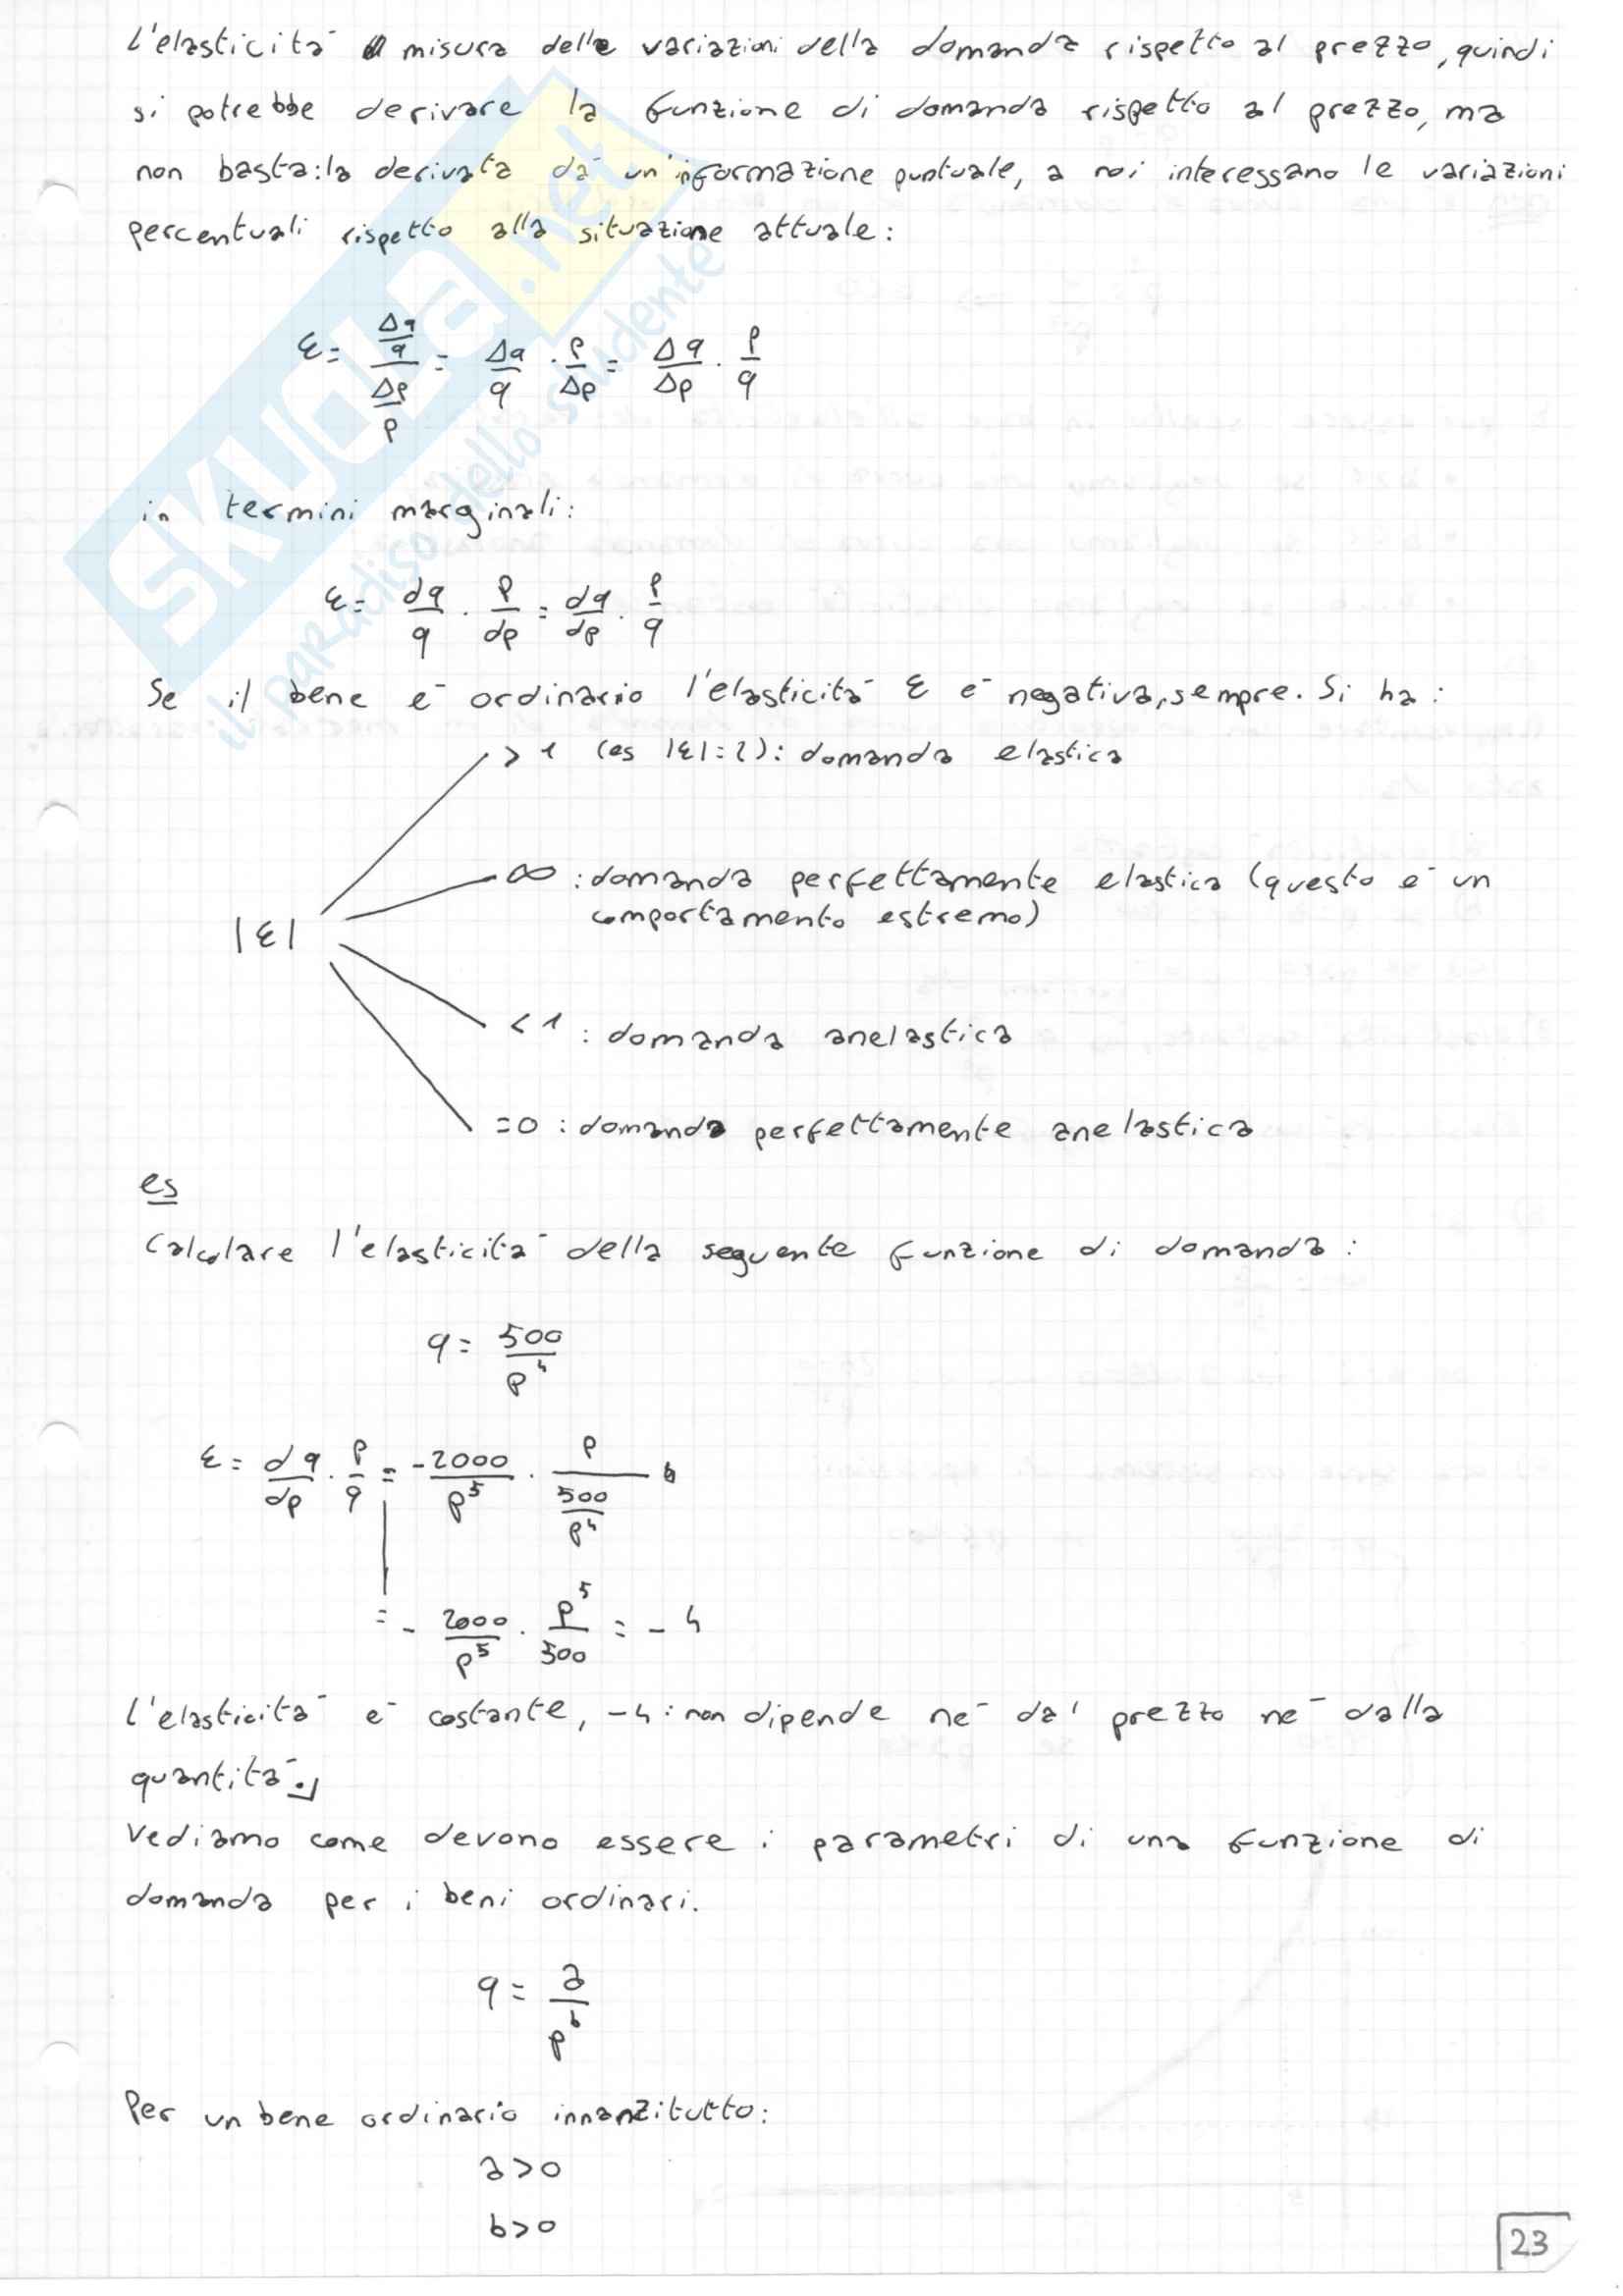 L'elasticità misura delle variazioni della domanda rispetto al prezzo, quindi
si potrebbe derivare la funzione di domanda rispetto al prezzo, ma
non basta: la derivata dà un'informazione puntuale, a noi interessano le variazioni
percentuali rispetto alla situazione attuale:
ε = (Δq/q)/(Δp/p) = Δq/q · p/Δp = Δq/Δp · p/q
in termini marginali:
ε = dq/q · p/dp = dq/dp · p/q
Se il bene è ordinario l'elasticità ε è negativa, sempre. Si ha:
> 1 (es |ε|=2): domanda elastica
∞ : domanda perfettamente elastica (questo è un
comportamento estremo)
|ε|
< 1 : domanda anelastica
=0 : domanda perfettamente anelastica
es
Calcolare l'elasticità della seguente funzione di domanda:
q = 500/p⁴
ε = dq/dp · p/q = -2000/p⁵ · p/(500/p⁴)
= - 2000/p⁵ · p⁵/500 = - 4
L'elasticità è costante, -4: non dipende nè dal prezzo nè dalla
quantità.
Vediamo come devono essere i parametri di una funzione di
domanda per i beni ordinari.
q = a/p^b
Per un bene ordinario innanzitutto:
a>0
b>0
23
SKUOLA.net
il paradiso dello studente